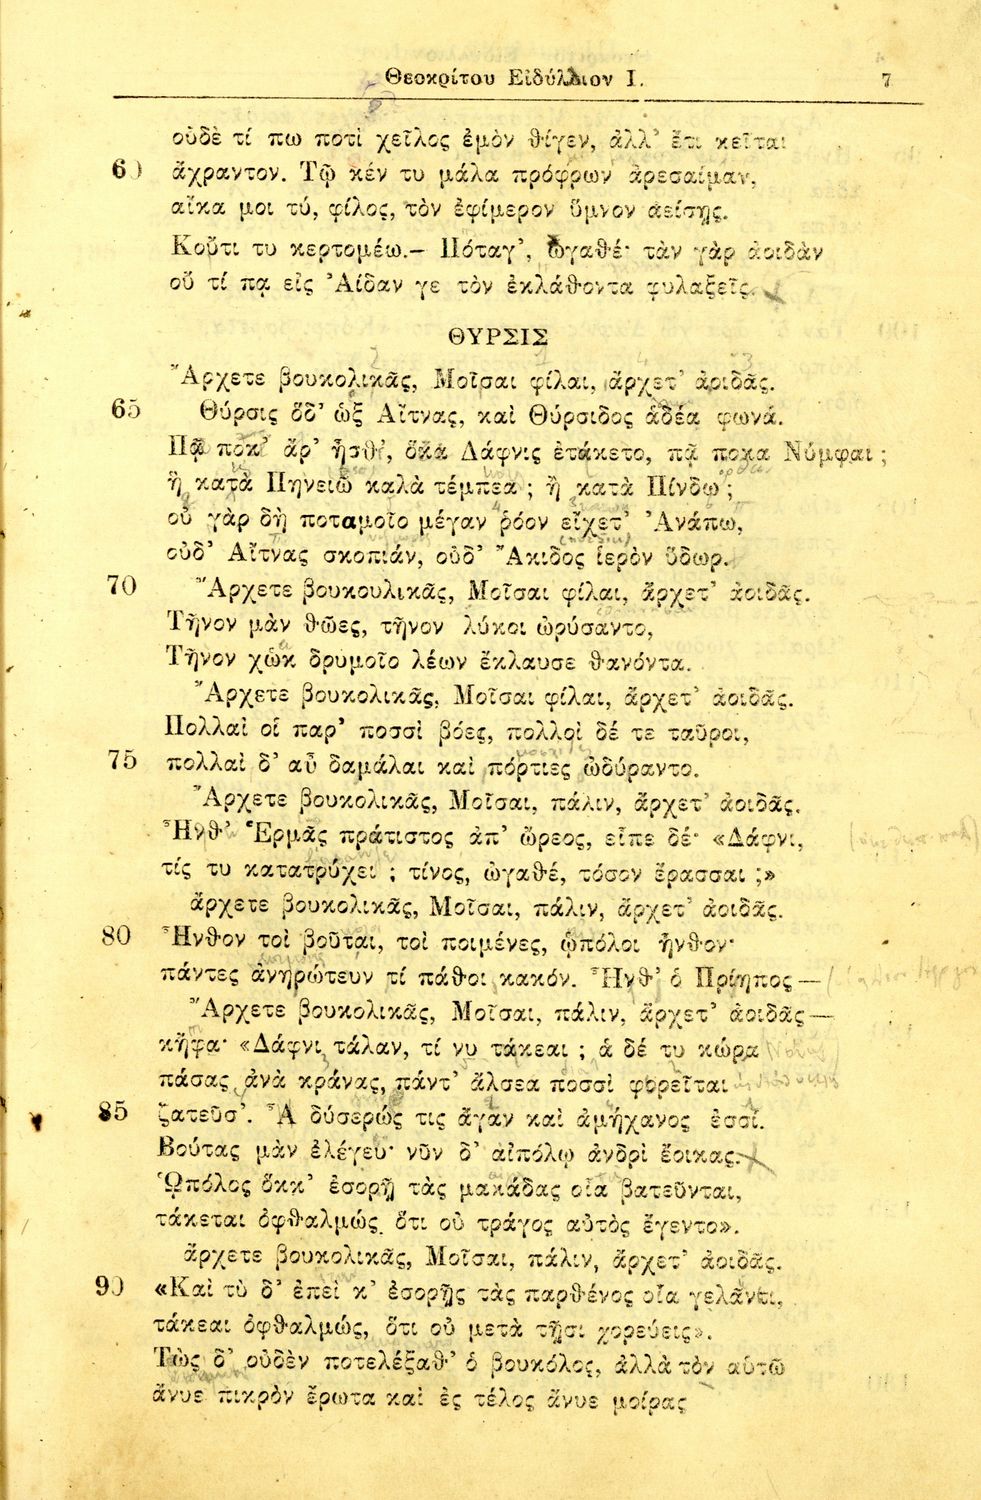 Θεοκρίτου Εἰδύλλιον Ι.
7
οὐδὲ τί πω ποτὶ χεῖλος ἐμὸν θίγεν, ἀλλ’ ἔτι κεῖται
60 ἄχραντον. Τῷ κέν τυ μάλα πρόφρων ἀρεσαίμαν,
αἴκα μοι τύ, φίλος, τὸν ἐφίμερον ὕμνον ἀείσῃς.
Κοὔτι τυ κερτομέω.— Πόταγ’, ὠγαθέ· τὰν γὰρ ἀοιδὰν
οὔ τί πᾳ εἰς Ἀΐδαν γε τὸν ἐκλάθοντα φυλαξεῖς.
ΘΥΡΣΙΣ
Ἄρχετε βουκολικᾶς, Μοῖσαι φίλαι, ἄρχετ’ ἀοιδᾶς.
65 Θύρσις ὅδ’ ὡξ Αἴτνας, καὶ Θύρσιδος ἁδέα φωνά.
Πᾷ ποκ’ ἄρ’ ἦσθ’, ὅκα Δάφνις ἐτάκετο, πᾷ ποκα Νύμφαι ;
ἢ κατὰ Πηνειῶ καλὰ τέμπεα ; ἢ κατὰ Πίνδω ;
οὐ γὰρ δὴ ποταμοῖο μέγαν ῥόον εἴχετ’ Ἀνάπω,
οὐδ’ Αἴτνας σκοπιάν, οὐδ’ Ἄκιδος ἱερὸν ὕδωρ.
70 Ἄρχετε βουκουλικᾶς, Μοῖσαι φίλαι, ἄρχετ’ ἀοιδᾶς.
Τῆνον μὰν θῶες, τῆνον λύκοι ὠρύσαντο,
Τῆνον χὡκ δρυμοῖο λέων ἔκλαυσε θανόντα.
Ἄρχετε βουκολικᾶς, Μοῖσαι φίλαι, ἄρχετ’ ἀοιδᾶς.
Πολλαὶ οἱ παρ’ ποσσὶ βόες, πολλοὶ δέ τε ταῦροι,
75 πολλαὶ δ’ αὖ δαμάλαι καὶ πόρτιες ὠδύραντο.
Ἄρχετε βουκολικᾶς, Μοῖσαι, πάλιν, ἄρχετ’ ἀοιδᾶς.
Ἦνθ’ Ἑρμᾶς πράτιστος ἀπ’ ὤρεος, εἶπε δέ· «Δάφνι,
τίς τυ κατατρύχει ; τίνος, ὠγαθέ, τόσον ἔρασσαι ;»
ἄρχετε βουκολικᾶς, Μοῖσαι, πάλιν, ἄρχετ’ ἀοιδᾶς.
80 Ἦνθον τοὶ βοῦται, τοὶ ποιμένες, ᾡπόλοι ἦνθον·
πάντες ἀνηρώτευν τί πάθοι κακόν. Ἦνθ’ ὁ Πρίηπος —
Ἄρχετε βουκολικᾶς, Μοῖσαι, πάλιν, ἄρχετ’ ἀοιδᾶς —
κἤφα· «Δάφνι τάλαν, τί νυ τάκεαι ; ἁ δέ τυ κώρα
πάσας ἀνὰ κράνας, πάντ’ ἄλσεα ποσσὶ φορεῖται
85 ζατεῦσ’. Ἆ δύσερώς τις ἄγαν καὶ ἀμήχανος ἐσσί.
Βούτας μὰν ἐλέγευ· νῦν δ’ αἰπόλῳ ἀνδρὶ ἔοικας.
Ὡπόλος ὅκκ’ ἐσορῇ τὰς μακάδας οἷα βατεῦνται,
τάκεται ὀφθαλμώς, ὅτι οὐ τράγος αὐτὸς ἔγεντο».
ἄρχετε βουκολικᾶς, Μοῖσαι, πάλιν, ἄρχετ’ ἀοιδᾶς.
90 «Καὶ τὺ δ’ ἐπεὶ κ’ ἐσορῇς τὰς παρθένος οἷα γελᾶντι,
τάκεαι ὀφθαλμώς, ὅτι οὐ μετὰ τῇσι χορεύεις».
Τὼς δ’ οὐδὲν ποτελέξαθ’ ὁ βουκόλος, ἀλλὰ τὸν αὑτῶ
ἄνυε πικρὸν ἔρωτα καὶ ἐς τέλος ἄνυε μοίρας